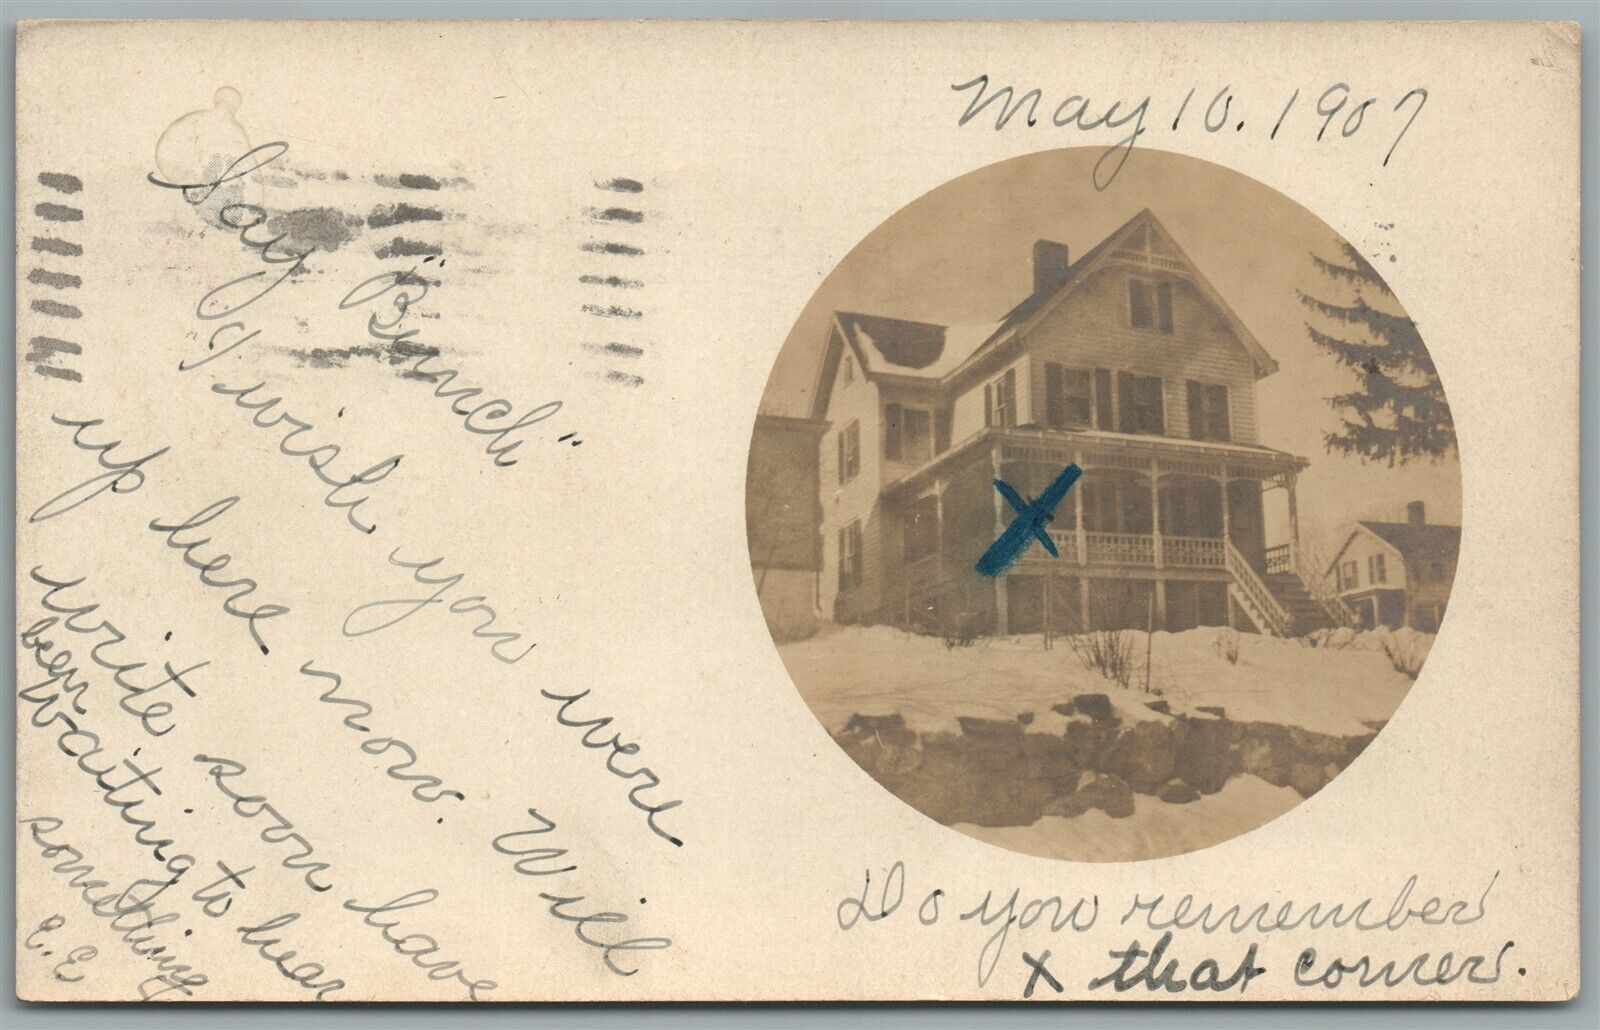 May 10. 1907
Say "Bunch"
I wish you were
up here now. Will
write soon have
been waiting to hear
something
E.E
Do you remember
x that corner.